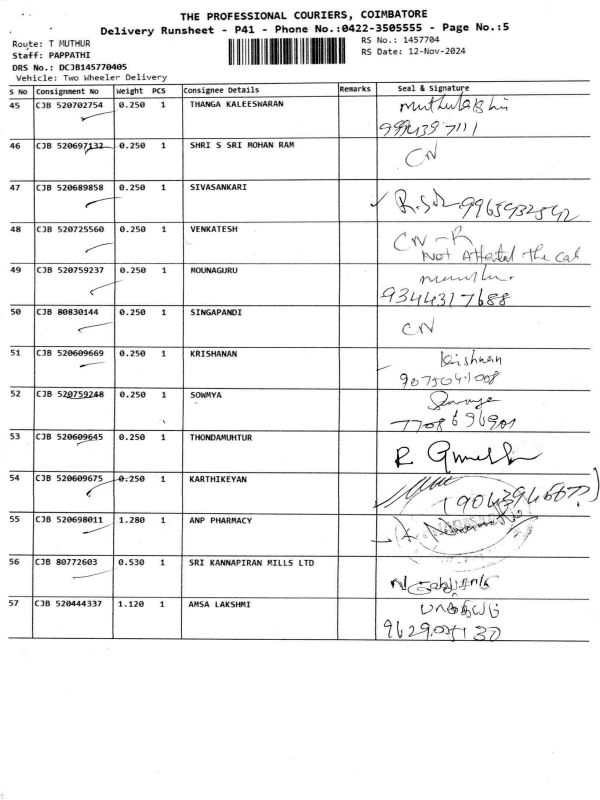 THE PROFESSIONAL COURIERS, COIMBATORE
Delivery Runsheet - P41 - Phone No.:0422-3505555 - Page No.:5
Route: T MUTHUR RS No.: 1457704
Staff: PAPPATHI RS Date: 12-Nov-2024
DRS No.: DCJB145770405
Vehicle: Two Wheeler Delivery
S No Consignment No Weight PCS Consignee Details Remarks Seal & Signature
45 CJB 520702754 0.250 1 THANGA KALEESWARAN
46 CJB 520697132 0.250 1 SHRI S SRI MOHAN RAM CN
47 CJB 520689858 0.250 1 SIVASANKARI
9965932542
48 CJB 520725560 0.250 1 VENKATESH CN-R
Not Attented the call
49 CJB 520759237 0.250 1 MOUNAGURU
9344317688
50 CJB 80830144 0.250 1 SINGAPANDI CN
51 CJB 520609669 0.250 1 KRISHANAN krishnan
9075041008
52 CJB 520759248 0.250 1 SOWMYA Sowmya
7708696901
53 CJB 520609645 0.250 1 THONDAMUHTUR
54 CJB 520609675 0.250 1 KARTHIKEYAN
55 CJB 520698011 1.280 1 ANP PHARMACY
56 CJB 80772603 0.530 1 SRI KANNAPIRAN MILLS LTD
57 CJB 520444337 1.120 1 AMSA LAKSHMI